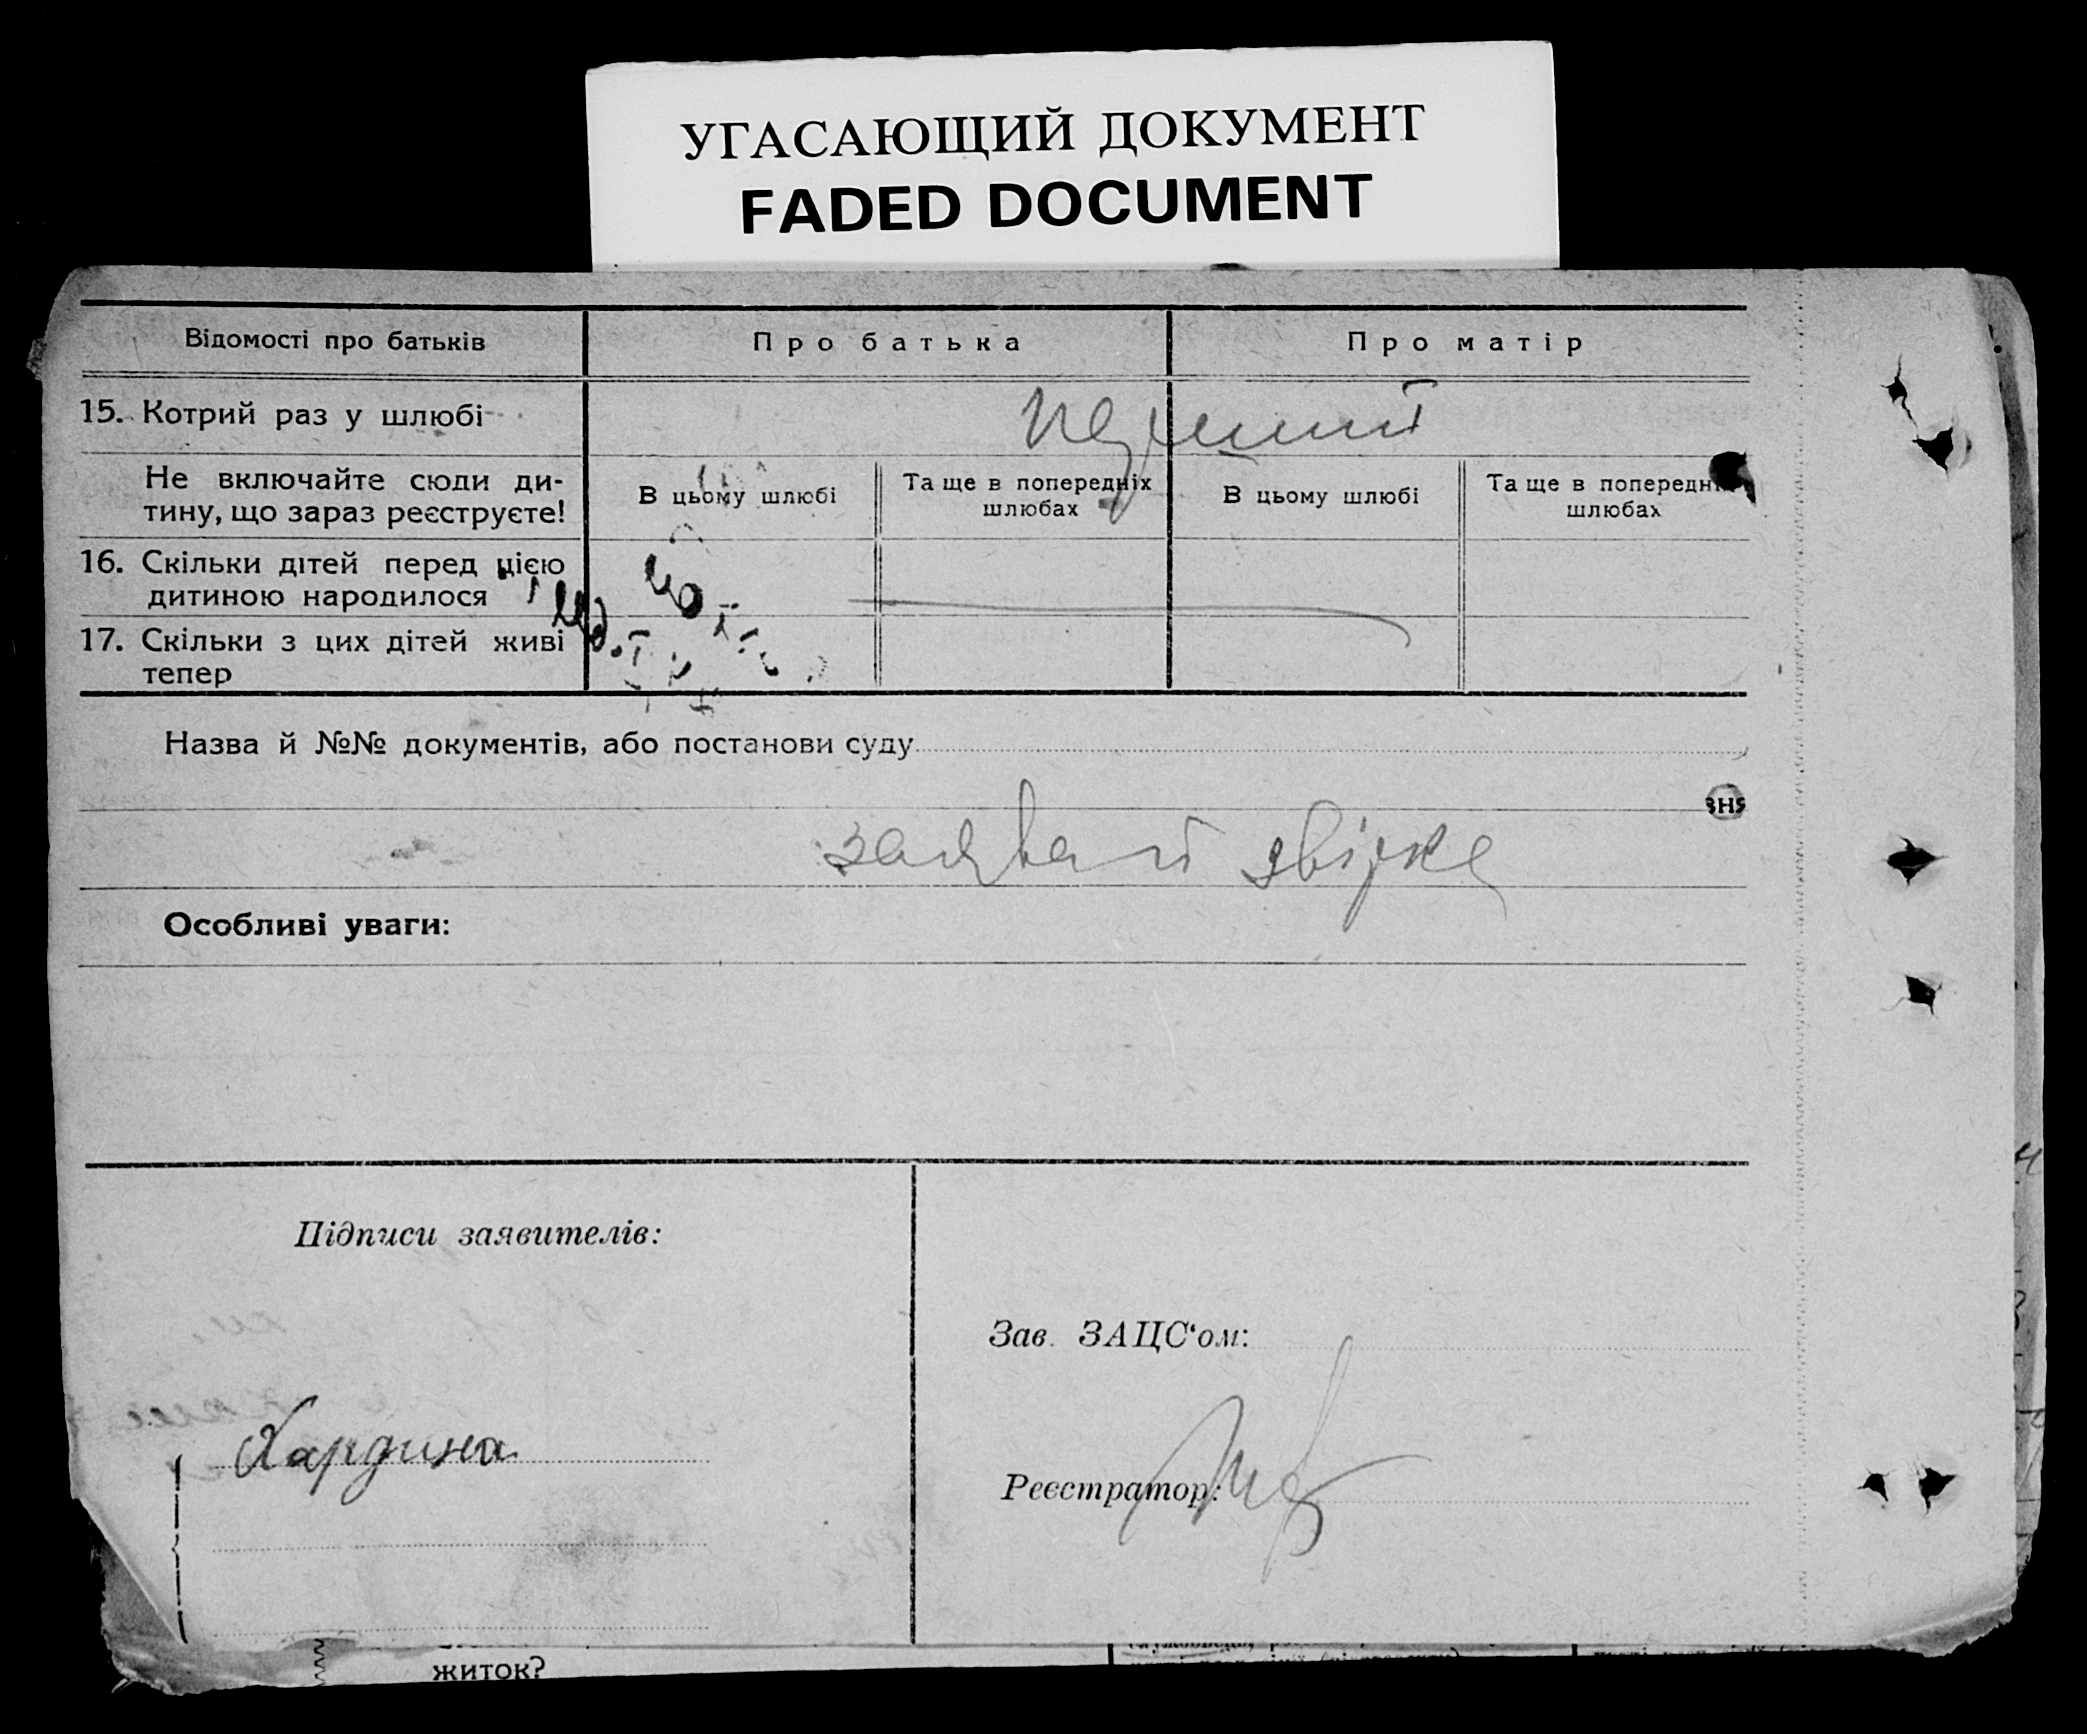 УГАСАЮЩИЙ ДОКУМЕНТ
FADED DOCUMENT
Відомості про батьків
Про батька
Про матір
15. Котрий раз у шлюбі
перший
Не включайте сюди ди-
тину, що зараз реєструєте!
В цьому шлюбі
Та ще в попередніх
шлюбах
В цьому шлюбі
Та ще в попередн
шлюбах
16. Скільки дітей перед цією
дитиною народилося
17. Скільки з цих дітей живі
тепер
Назва й №№ документів, або постанови суду
заява й
Особливі уваги:
Підписи заявителів:
Зав. ЗАЦС‘ом:
Хардина
Реєстратор:
житок?